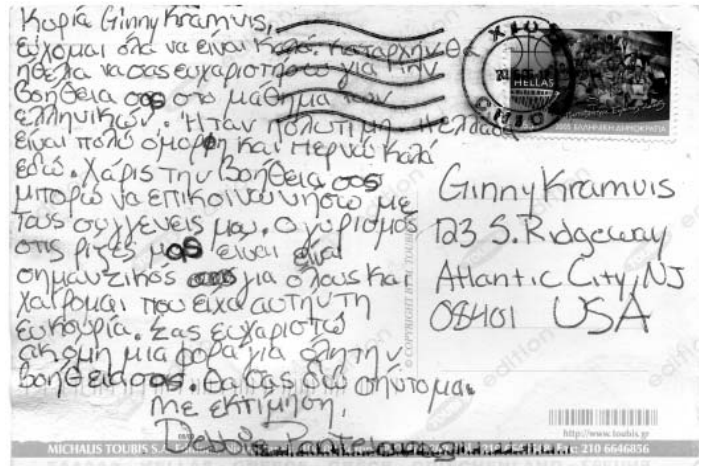 Κυρία Ginny Kramvis,
εύχομαι όλα να είναι καλά. Καταρχήν θα
ήθελα να σας ευχαριστήσω για την
βοήθεια σας στο μάθημα των
ελληνικών. Ήταν πολύτιμη. Η Ελλάδα
είναι πολύ όμορφη και περνώ καλά
εδώ. Χάρις την βοήθεια σας
μπορώ να επικοινωνήσω με
τους συγγενείς μου. Ο γυρισμός
στις ρίζες μας είναι είναι
σημαντικός για όλους και
χαίρομαι που είχα αυτήν τη
ευκουρία. Σας ευχαριστώ
ακόμη μια φορά για όλη την
βοήθεια σας. Θα σας δω σήντομα.
Με εκτίμηση,
Debbie
ΧΙΟΣ
CHIOS
HELLAS
2005 ΕΛΛΗΝΙΚΗ ΔΗΜΟΚΡΑΤΙΑ
Ginny Kramvis
123 S. Ridgeway
Atlantic City, NJ
08401 USA
© COPYRIGHT BY M. TOUBIS
edition
edition
edition
http://www.toubis.gr
MICHALIS TOUBIS S.A.
210 6646856